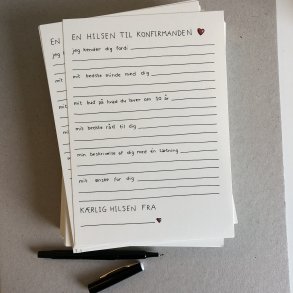 EN HILSEN TIL KONFIRMANDEN
jeg kender dig fordi
mit bedste minde med dig
mit bud på hvad du laver om 10 år
mit bedste råd til dig
min beskrivelse af dig med én sætning
mit ønske for dig
KÆRLIG HILSEN FRA